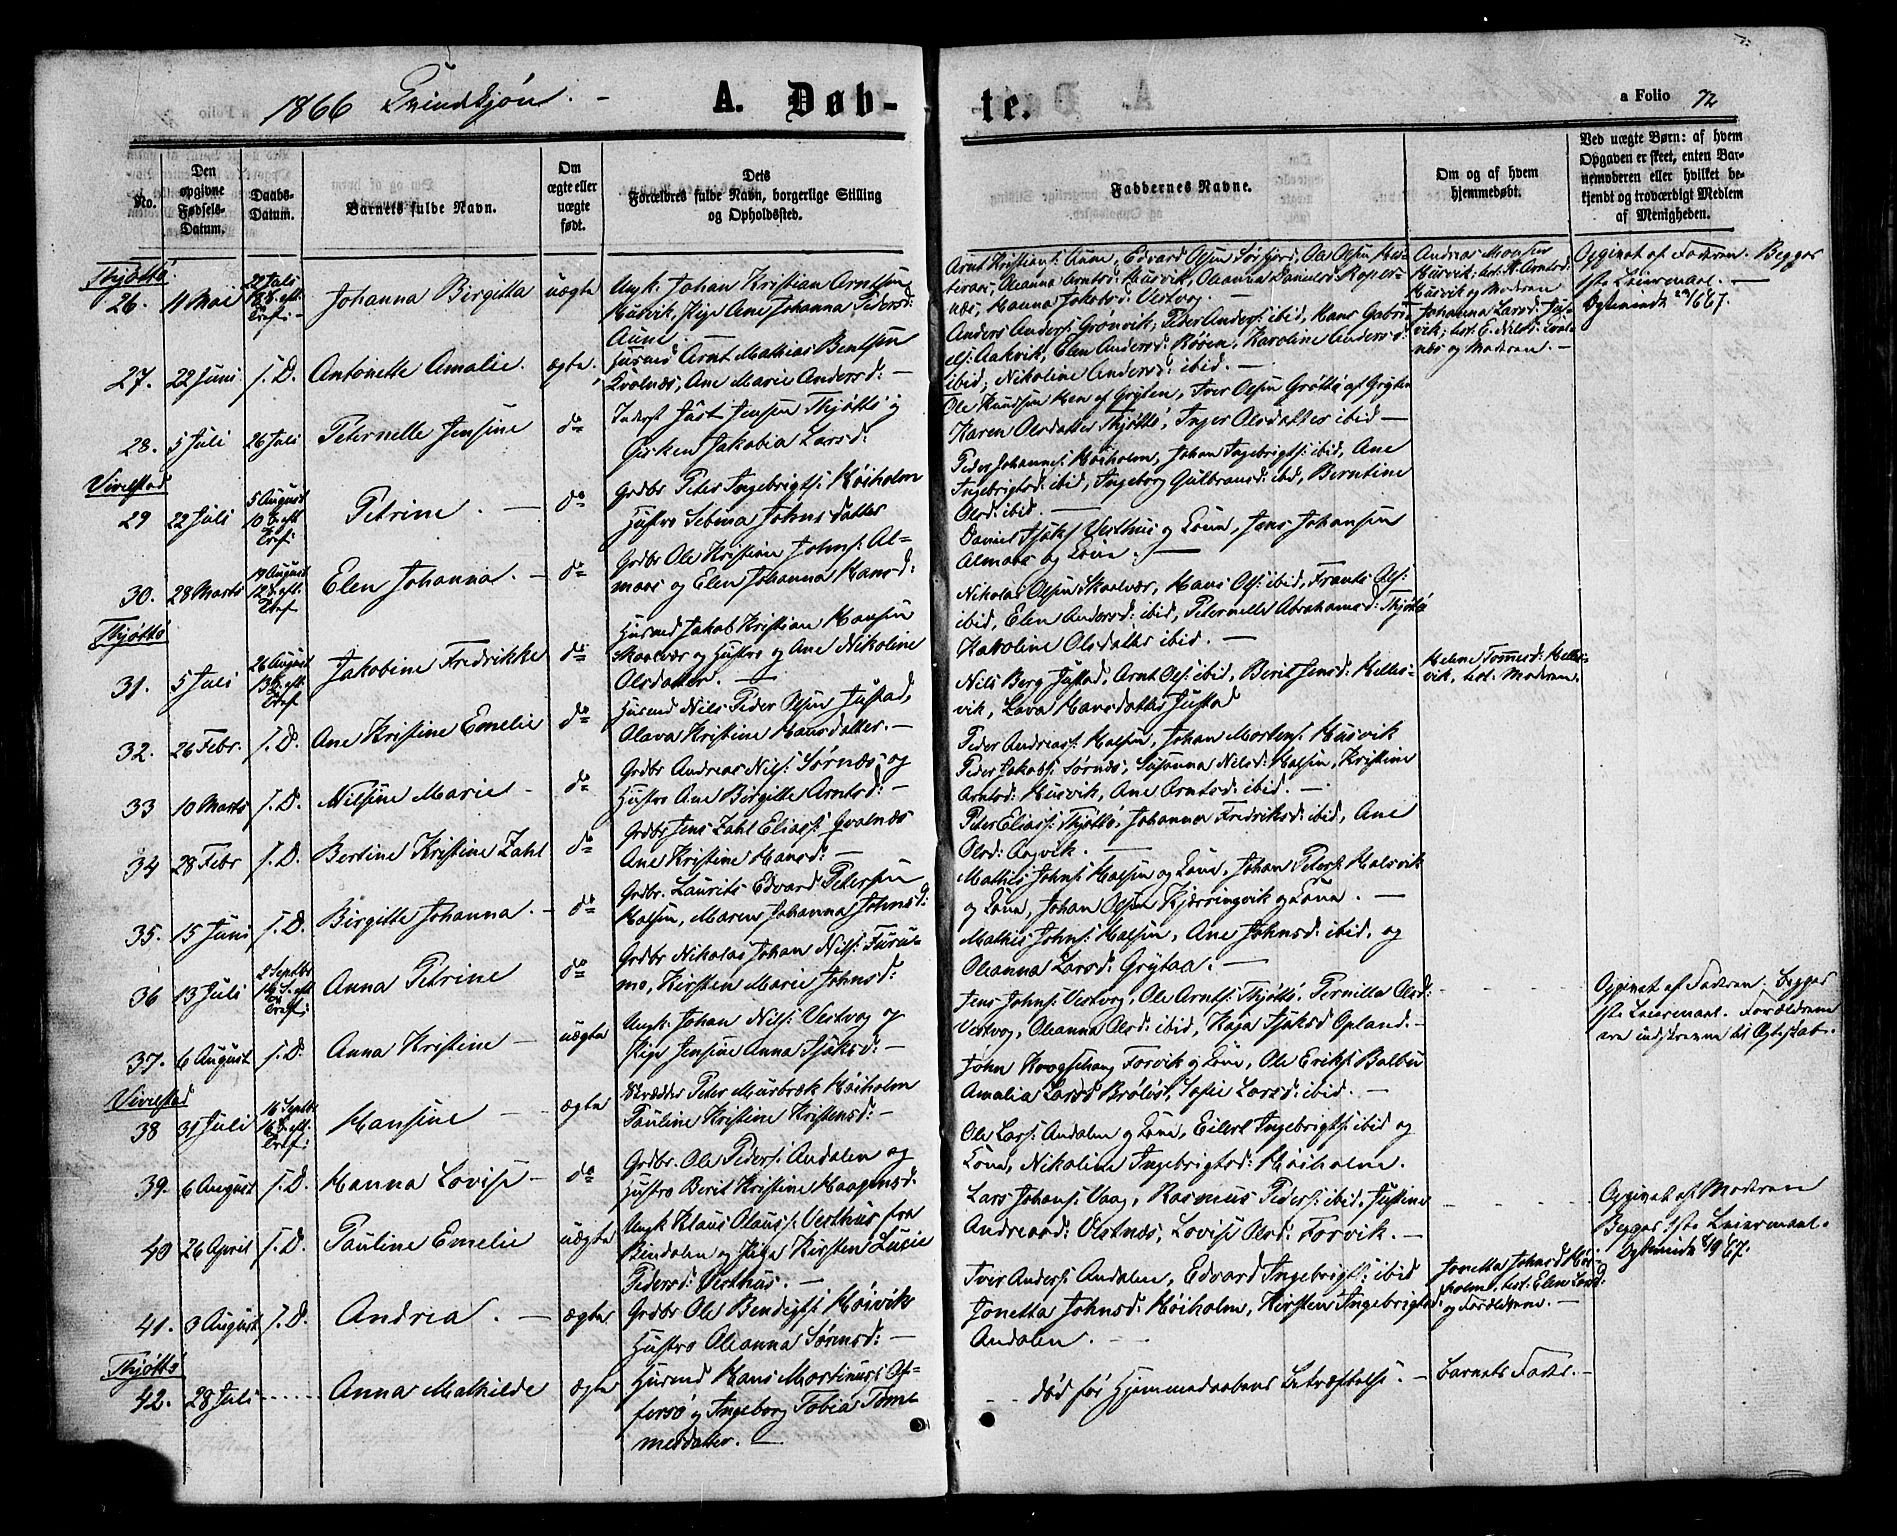 1866 Qvindkjøn. - A. Døb- te. a Folio 72
No.
Den opgivne Fødsels-Datum.
Daabs-Datum.
Barnets fulde Navn.
Om ægte eller uægte født.
Dets Forældres fulde Navn, borgerlige Stilling og Opholdssted.
Faddernes Navne.
Om og af hvem hjemmedøbt.
Ved uægte Børn: af hvem Opgaven er skeet, enten Barnemoderen eller hvilket bekjendt og troværdigt Medlem af Menigheden.
Thjøttø
26. 11 Mai 22 Juli 8 S. eft. Tref: Johanna Birgitta uægte
Ungk: Johan Kristian Arntsen
Husvik, Pige Ane Johanna Pedersd:
Aune
Arnt Kristians: Aune, Edvard Olsen Sør
Oleanna Arntsd: Husvik,
Hanna Jakobsd: Vestvog. —
Andreas
Husvik; bet. K. Arntsd:
Husvik og Moderen
Opgivet af Faderen. Begges
1ste Leiermaal. —
27. 22 Juni s. D. Antonette Amalie. ægte.
Husmd Arnt Mathias Bentsen
Qvolnæs, Ane Marie Andersd: —
Anders Anders: Grønvik, Peder Anders: ibid, Hans Gabri-
els: Aakvik, Elen Andersd: Røøen, Karoline Andersd:
ibid, Nikoline Andersd: ibid. —
Johanna Larsd:
og Moderen. —
28. 5 Juli 26 Juli Peternelle Jensine do
Inderst Just Jensen Thjøttø og
Gjørken Jakobia Larsd:
Ole Knudsen Moen af Gryten, Iver Olsen Grøttø af Gryten
Karen Olsdatter Thjøttø, Inger Olsdatter ibid —
Vivelstad
29 22 Juli 5 August 10 S. eft. Tref: Petrine. — do
Grdbr Peter Ingebrigts: Høiholm
Hustro Sebina Johnsdatter
Peder Johannes: Høiholm, Johan Ingebrigts: ibid, Ane
Ingebrigtsd: ibid, Ingeborg Gulbransd: ibd, Berntine
Olsd: ibid. —
30. 28 Marts 19 August 12 S. eft. Tref Elen Johanna. — do
Grdbr Ole Kristian Johns: Al-
maas og Elen Johanna Hansd:
Daniel Isaks: Vesthus og Kone, Jens Johansen
Almaas og Kone. —
Thjøttø
31. 5 Juli 26 August 13 S. eft. Tref Jakobine Fredrikke do
Husmd Jakob Kristian Hansen
Skaalvær og Hustro og Ane Nikoline
Olsdatter. —
Nikolas Olsen Skaalvær, Hans Ols: ibid, Frants Ols:
ibid, Elen Andersd: ibid, Peternelle Abrahamsd: Thjøttø
Karoline Olsdatter ibid. —
32. 26 Febr. s. D. Ane Kristine Emelie do
Husmd Nils Peder Olsen Justad,
Olava Kristine Hansdatter. —
Nils Berg Justad, Arnt Ols: ibid, Berit Jensd: Helles-
vik, Lava Hansdatter Justad
Helene Tommesd: Helles-
vik, bet. Moderen.
33 10 Marts s. D. Nilsine Marie — do
Grdbr Andreas Nils: Sørnæs og
Hustro Ane Birgitte Arntsd: —
Peder Andreas: Halsen, Johan Mortens: Husvik
Peder Jakobs: Sørnæs, Susanna Nilsd: Halsen, Kristine
Arntsd: Husvik, Ane Arntsd: ibid. —
34 28 Febr s. D. Bertine Kristine Zahl do
Grdbr Jens Zahl Elias: Qvalnæs
Ane Kristine Hansd: —
Peter Elias: Thjøttø, Johanna Fredriksd: ibid, Ane
Olsd: Aagvik. —
35. 15 Juni s. D. Birgitte Johanna. — do
Grdbr. Laurits Edvard Petersen
Halsen, Maren Johanna Johnsd:
Mathis Johns: Halsen og Kone, Johan Peters: Halsvik
og Kone, Johan Olsen Kjærringvik og Kone. —
36 13 Juli 2 Septbr 14 S. eft. Tref: Anna Petrine do
Grdbr Nikolas Johan Nils: Furu-
mo, Kirsten Marie Johnsd:
Mathis Johns: Halsen, Ane Johnsd: ibid, og
Oleanna Larsd: Grytaa. —
37. 6 August s. D. Anna Kristine — uægte
Ungk: Johan Nils: Vestvog og
Pige Jensine Anna Isaksd: —
Jens Johns: Vestvog, Ole Arnts: Thjøttø, Pernilla Olsd:
Vestvog, Oleanna Olsd: ibid, Kaja Isaksd Opland. —
Opgivet af Faderen. Begges
1ste Leiermaal. Forældrene
ere indskrevne til Ægteskab.
Vivelstad
38 31 Juli 16 Septbr 16 S. eft. Tref: Hansine — ægte
Skrædder Peter Musbræk Høiholm
Pauline Kristine Kristensd: —
John Kroghhaug Forvik og Kone, Ole Eriks: Balbu
Amalia Larsd Brøløs, Sofie Larsd: ibid. —
39. 6 August s. D. Hanna Lovise — do
Grdbr. Ole Peders: Andalen og
Hustro Berit Kristine Haagensd.
Ole Lars: Andalen og Kone, Eilert Ingebrigts: ibid og
Kone, Nikoline Ingebrigtsd: Høiholm.
40 26 April s. D. Pauline Emelie uægte
Ungk Klaus Olaus: Vesthus fra
Bindalen og Pige Kirsten Lucie
Pedersd: Vesthus. —
Lars Johans: Vaag, Rasmus Peders: ibid, Justine
Andreasd: Olstnæs, Lovise Olsd: Forvik. —
Opgivet af Moderen
Begges 1ste Leiermaal.
41. 3 August s. D. Andrea. — ægte
Grdbr Ole Bendigts: Høivik
Hustro Oleanna Sørensd: —
Iver Anders: Andalen, Edvard Ingebrigts: ibid
Jonetta Johnsd: Høiholm, Kirsten Ingebrigtsd:
Andalen. —
Jonetta Johnsd Høi-
holm, bet: Elen Larsd:
og Forældrene. —
Thjøttø
42. 28 Juli Anna Mathilde ægte
Husmd Hans Martinus: Of-
fersø og Ingeborg Tobia Tom-
mesdatter. —
død før Hjemmedaabens Bekræftelse. —
Barnets Fader. —